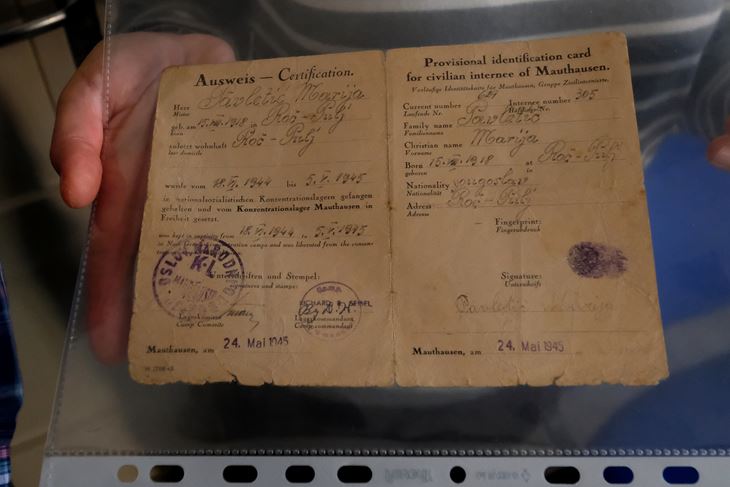 Ausweis — Certification.
Herr Pavletić Marija
Mister
geb. am 15.VIII.1918 in Roč-Pulj
Born
zuletzt wohnhaft Roč-Pulj
last domicile
wurde vom 18.VI.1944 bis 5.V.1945
in nationalsozialistischen Konzentrationslagern gefangen
gehalten und vom Konzentrationslager Mauthausen in
Freiheit gesetzt.
was kept in captivity from 18.VI.1944 to 5.V.1945
in Nazi German concentration camps and was liberated from the concen-
K-L
Unterschriften und Stempel:
Signatures and stamps:
RICHARD R. SEIBEL
Lagerkomitee
Camp Comitte
Lagerkommandant
Camp commandant
Mauthausen, am 24. Mai 1945
Provisional identification card
for civilian internee of Mauthausen.
Vorläufige Identitätskarte für Mauthausen, Gruppe Zivilinternierte.
Current number Internee number 305
Laufende Nr. Häftlings-Nr.
Family name Pavletić
Familienname
Christian name Marija
Vorname
Born 15.VIII.1918 at Roč-Pulj
geboren in
Nationality jugoslav.
Nationalität
Adress Roč-Pulj
Adresse
— Fingerprint:
Fingerabdruck
Signature:
Unterschrift:
Pavletić Marija
Mauthausen, am 24. Mai 1945